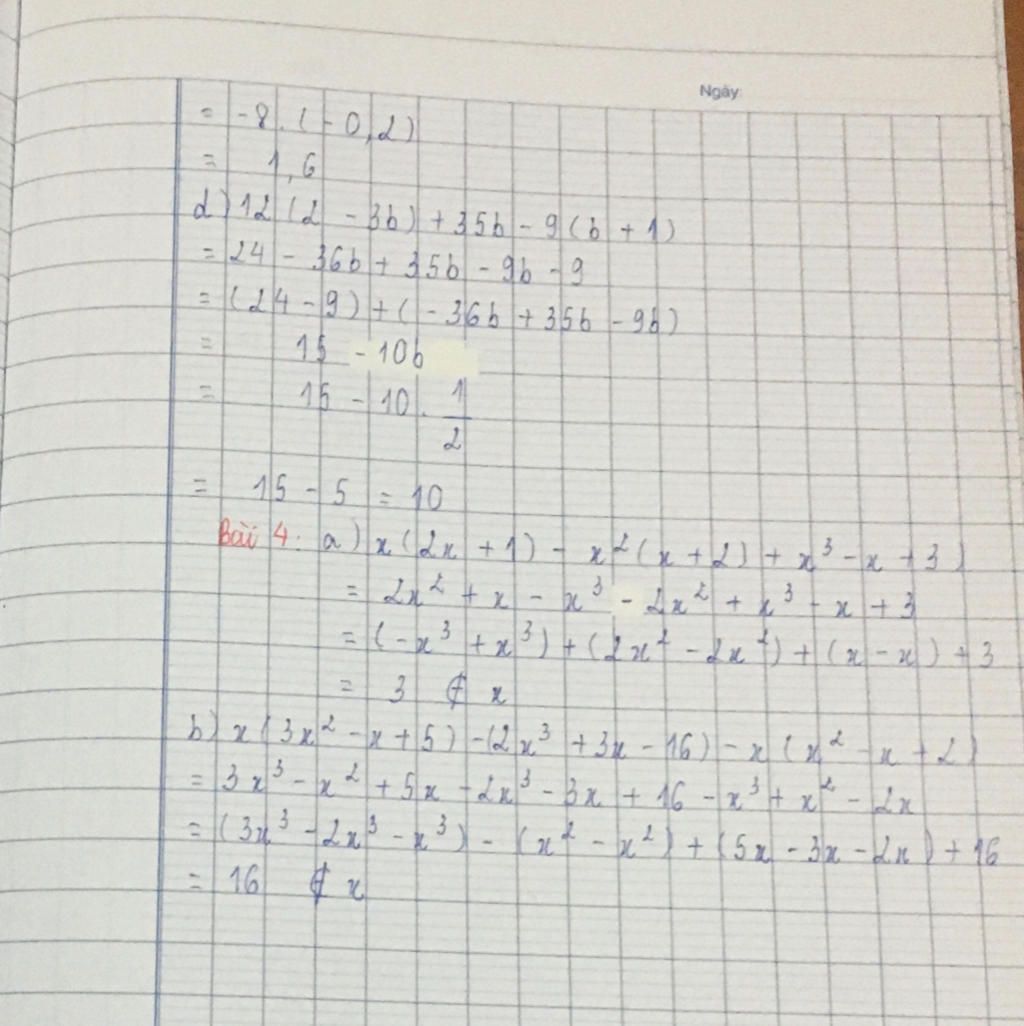 Ngày
= -8.(-0,2)
= 1,6
d) 12(2 - 3b) + 35b - 9(b + 1)
= 24 - 36b + 35b - 9b - 9
= (24 - 9) + (-36b + 35b - 9b)
= 15 - 10b
= 15 - 10 . 1/2
= 15 - 5 = 10
Bài 4: a) x(2x + 1) - x²(x + 2) + x³ - x + 3)
= 2x² + x - x³ - 2x² + x³ - x + 3
= (-x³ + x³) + (2x² - 2x²) + (x - x) + 3
= 3 ∉ x
b) x(3x² - x + 5) - (2x³ + 3x - 16) - x(x² - x + 2)
= 3x³ - x² + 5x - 2x³ - 3x + 16 - x³ + x² - 2x
= (3x³ - 2x³ - x³) - (x² - x²) + (5x - 3x - 2x) + 16
= 16 ∉ x